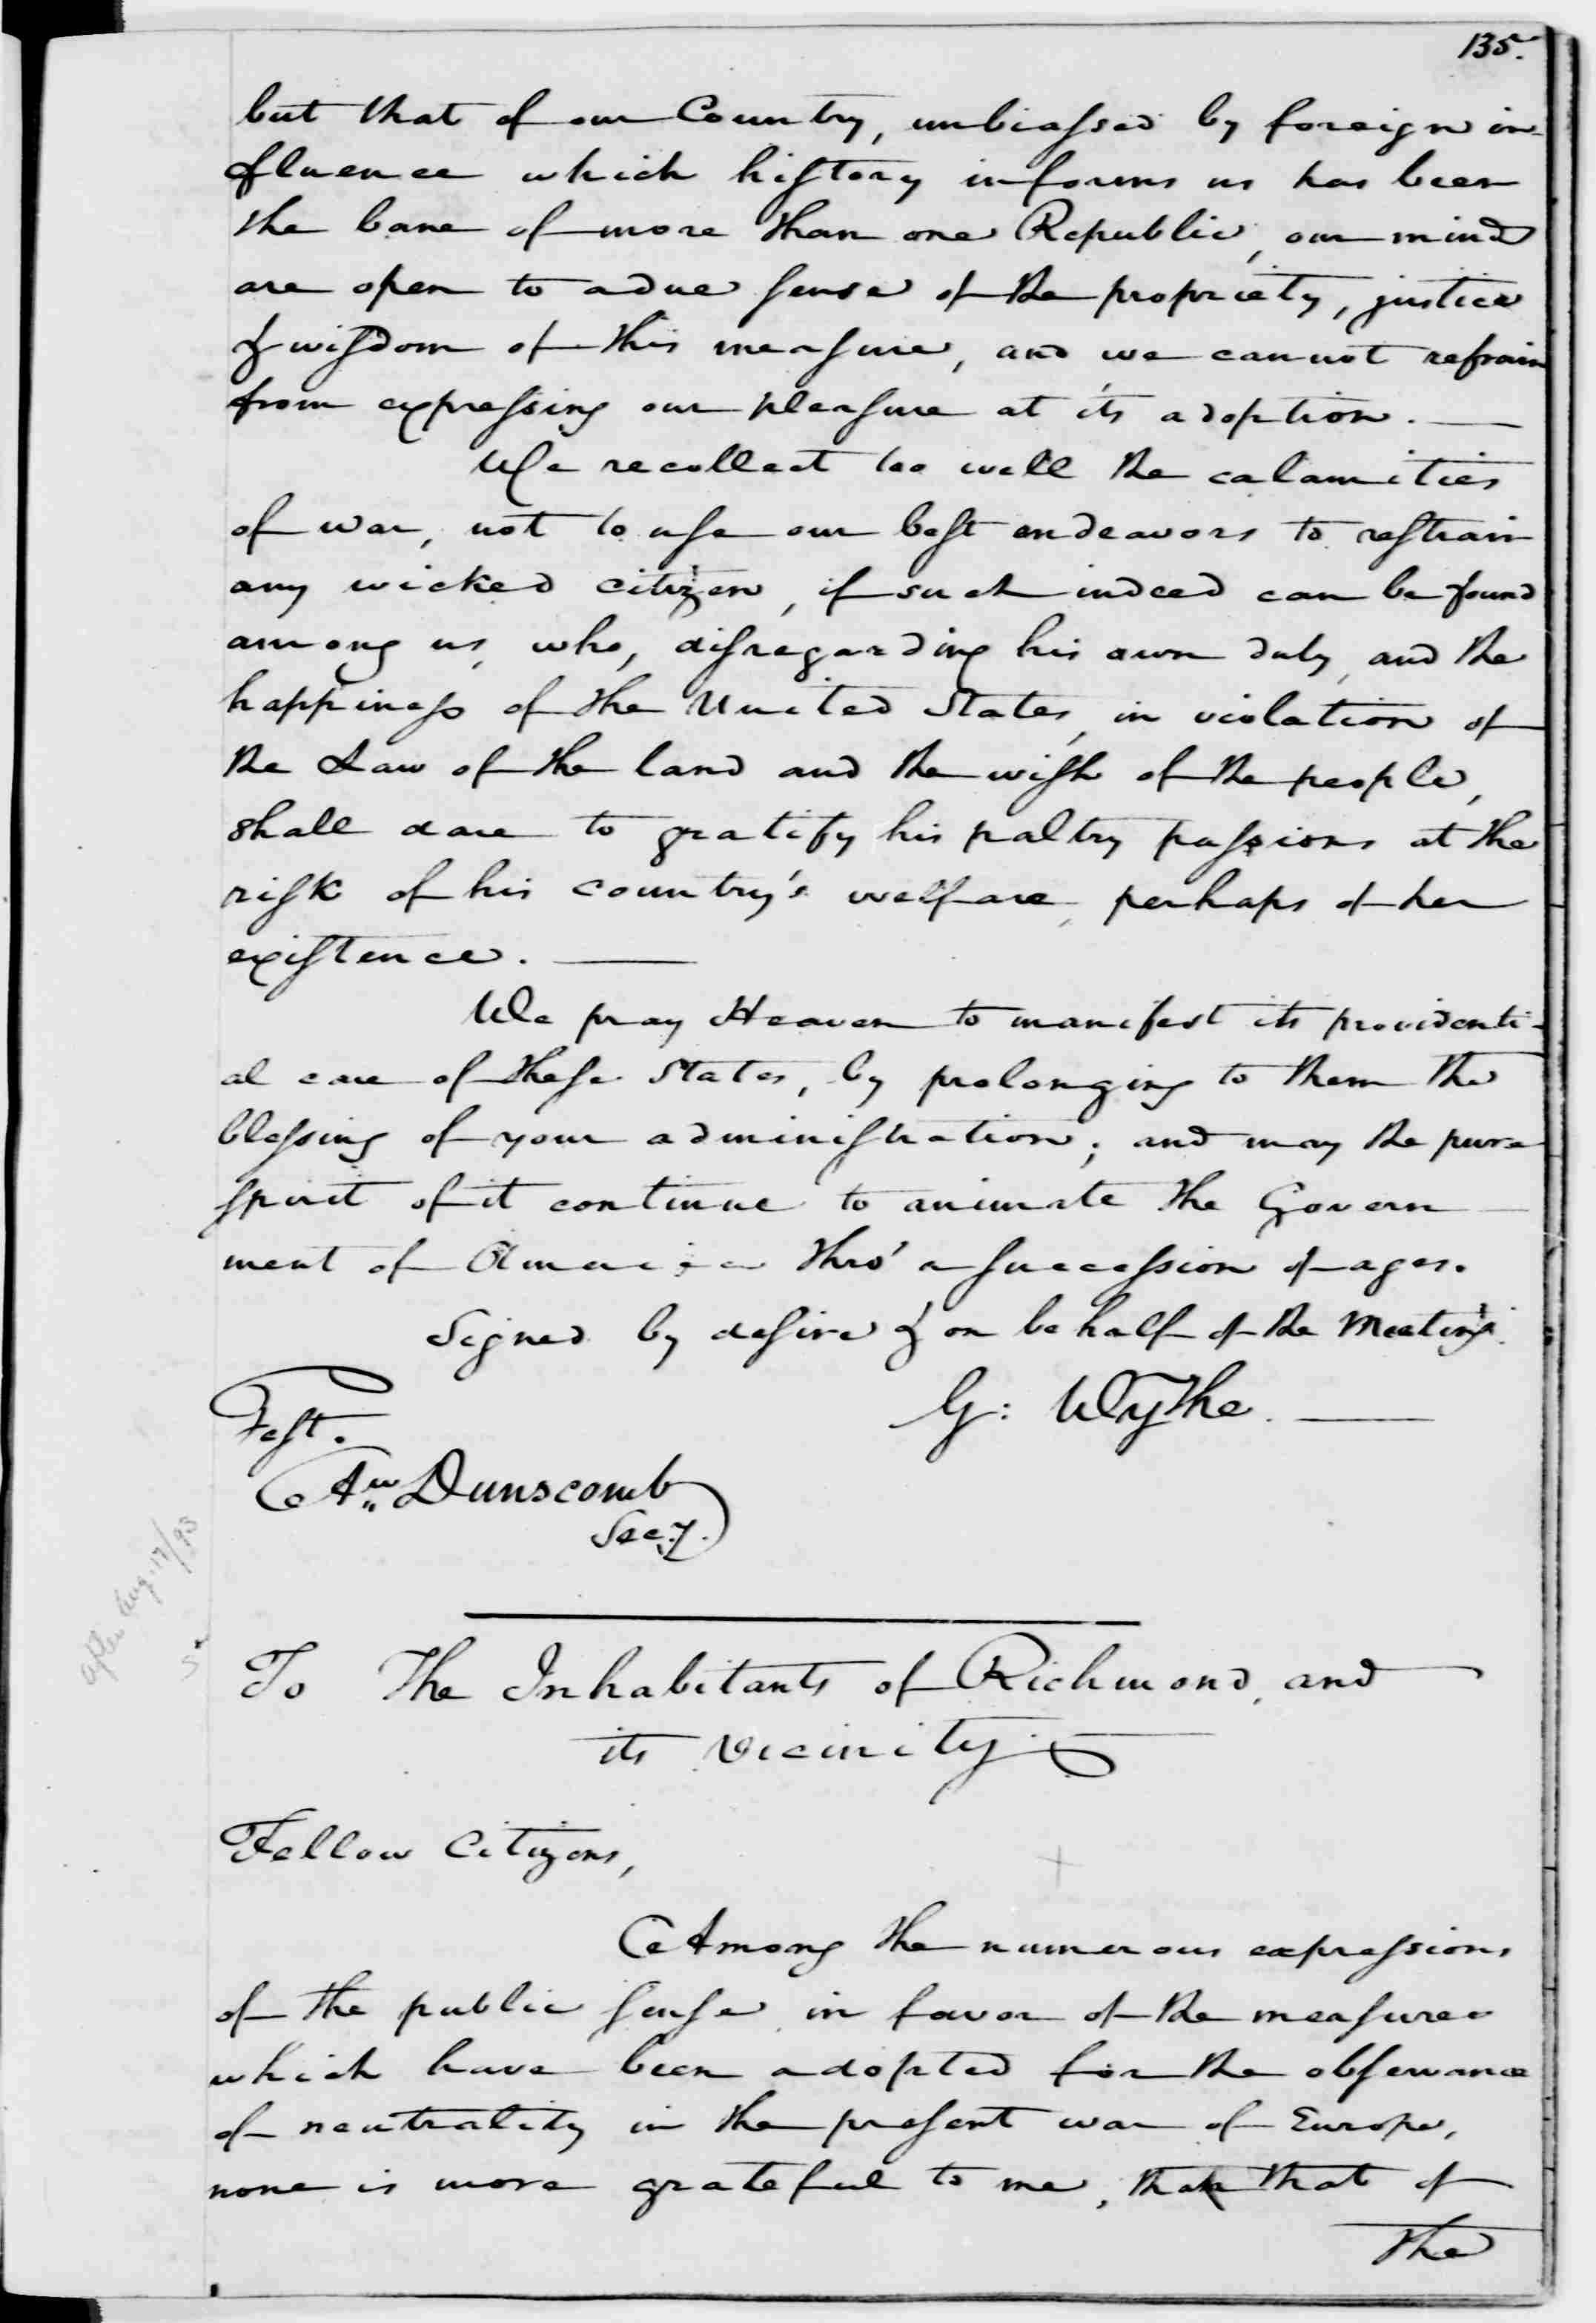 135.
but that of our Country, unbiassed by foreign in-
fluence which history informs us has been
the bane of more than one Republic, our minds
are open to a due sense of the propriety, justice
& wisdom of this measure, and we cannot refrain
from expressing our pleasure at it's adoption. —
We recollect too well the calamities
of war, not to use our best endeavors to restrain
any wicked citizen, if such indeed can be found
among us, who, disregarding his own duty, and the
happiness of the United States, in violation of
the Law of the land and the wish of the people,
shall dare to gratify his paltry passions at the
risk of his country's welfare, perhaps of her
existence. —
We pray Heaven to manifest its providenti-
al care of these States, by prolonging to them the
blessing of your administration; and may the pure
spirit of it continue to animate the Govern
ment of America thro' a succession of ages.
Signed by desire & on behalf of the Meeting.
G: Wythe. —
Test.
Aw. Dunscomb
Secy.
after Aug. 17/93
To The Inhabitants of Richmond, and
its Vicinity.
Fellow Citizens,
Among the numerous expressions
of the public sense, in favor of the measures
which have been adopted for the observance
of neutrality in the present war of Europe,
none is more grateful to me, than that of
the